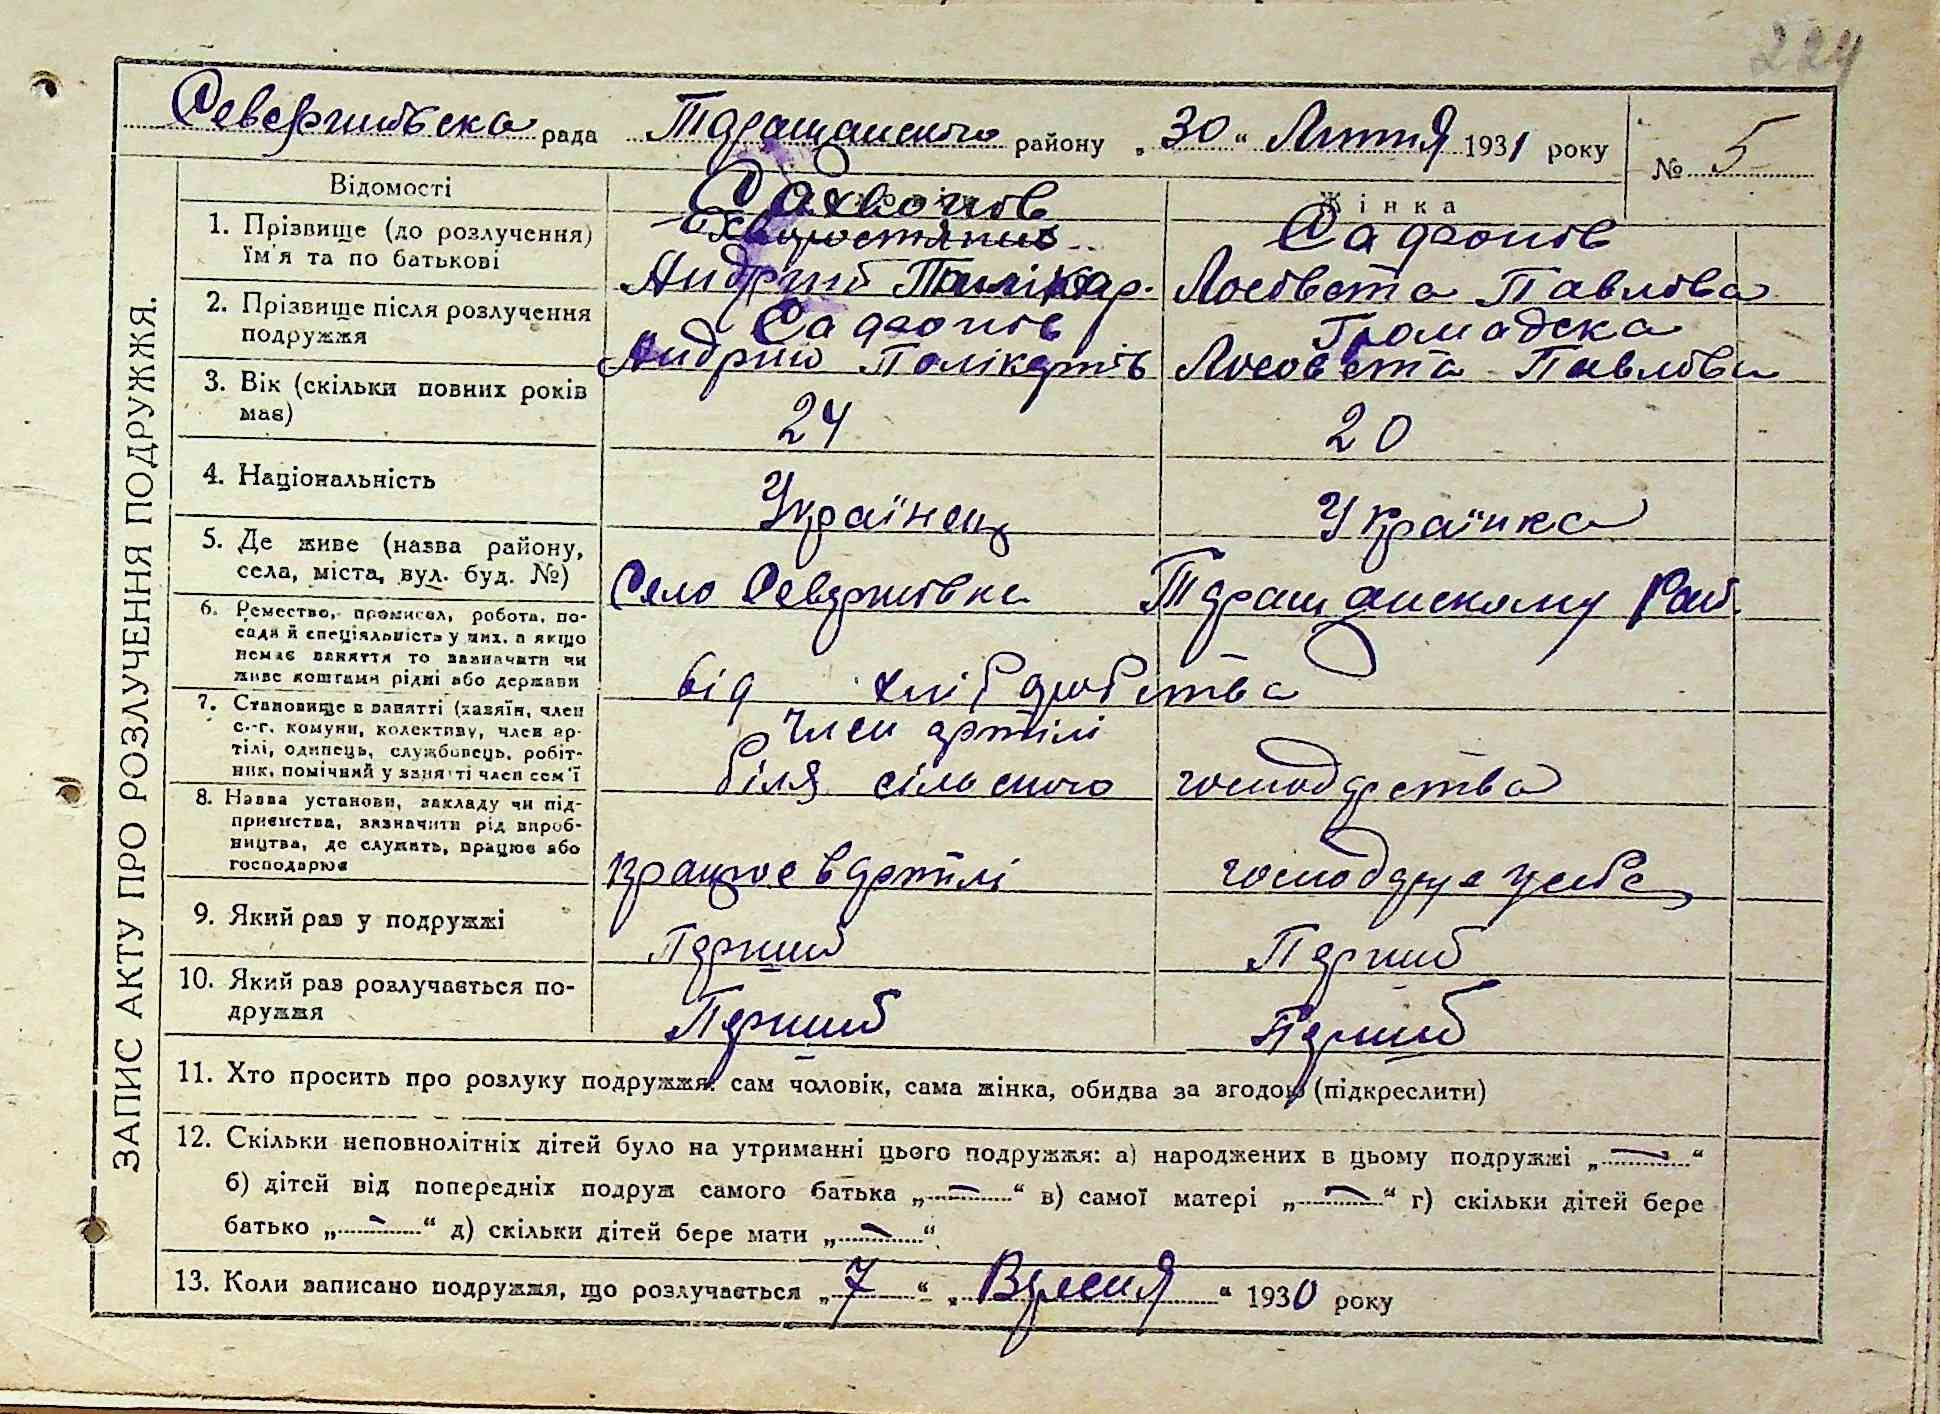 224
Северинівська рада Таращанського району „30“ Липня 1931 року № 5
ЗАПИС АКТУ ПРО РОЗЛУЧЕННЯ ПОДРУЖЖЯ.
Відомості
Жінка
1. Прізвище (до розлучення)
їм'я та по батькові
Сахвонів
Андрій Полікар.
Сафронів
Лисовета Павлова
2. Прізвище після розлучення
подружжя
Сафронів
Андрій Полікарпів
Громадська
Лисовета Павлова
3. Вік (скільки повних років
має)
24
20
4. Національність
Українец
Українка
5. Де живе (назва району,
села, міста, вул. буд. №)
Село Северинівка Таращанскому Рай.
6. Ремество, промисел, робота, по-
сада й спеціяльність у них, а якщо
немає заняття то зазначити чи
живе коштами рідні або держави
від хлібаробства
7. Становище в занятті (хазяїн, член
с.-г. комуни, колективу, член ар-
тілі, одинець, службовець, робіт-
ник, помічний у занятті член сем'ї
член артілі
біля сільського господарства
8. Назва установи, закладу чи під-
приємства, зазначити рід вироб-
ництва, де служить, працює або
господарює
працює в артілі
господарує у себе
9. Який раз у подружжі
Перший
Перший
10. Який раз розлучається по-
дружжя
Перший
Перший
11. Хто просить про розлуку подружжя: сам чоловік, сама жінка, обидва за згодою (підкреслити)
12. Скільки неповнолітніх дітей було на утриманні цього подружжя: а) народжених в цьому подружжі „—“
б) дітей від попередніх подруж самого батька „—“ в) самої матері „—“ г) скільки дітей бере
батько „—“ д) скільки дітей бере мати „—“.
13. Коли записано подружжя, що розлучається „7“ „Вресня“ 1930 року